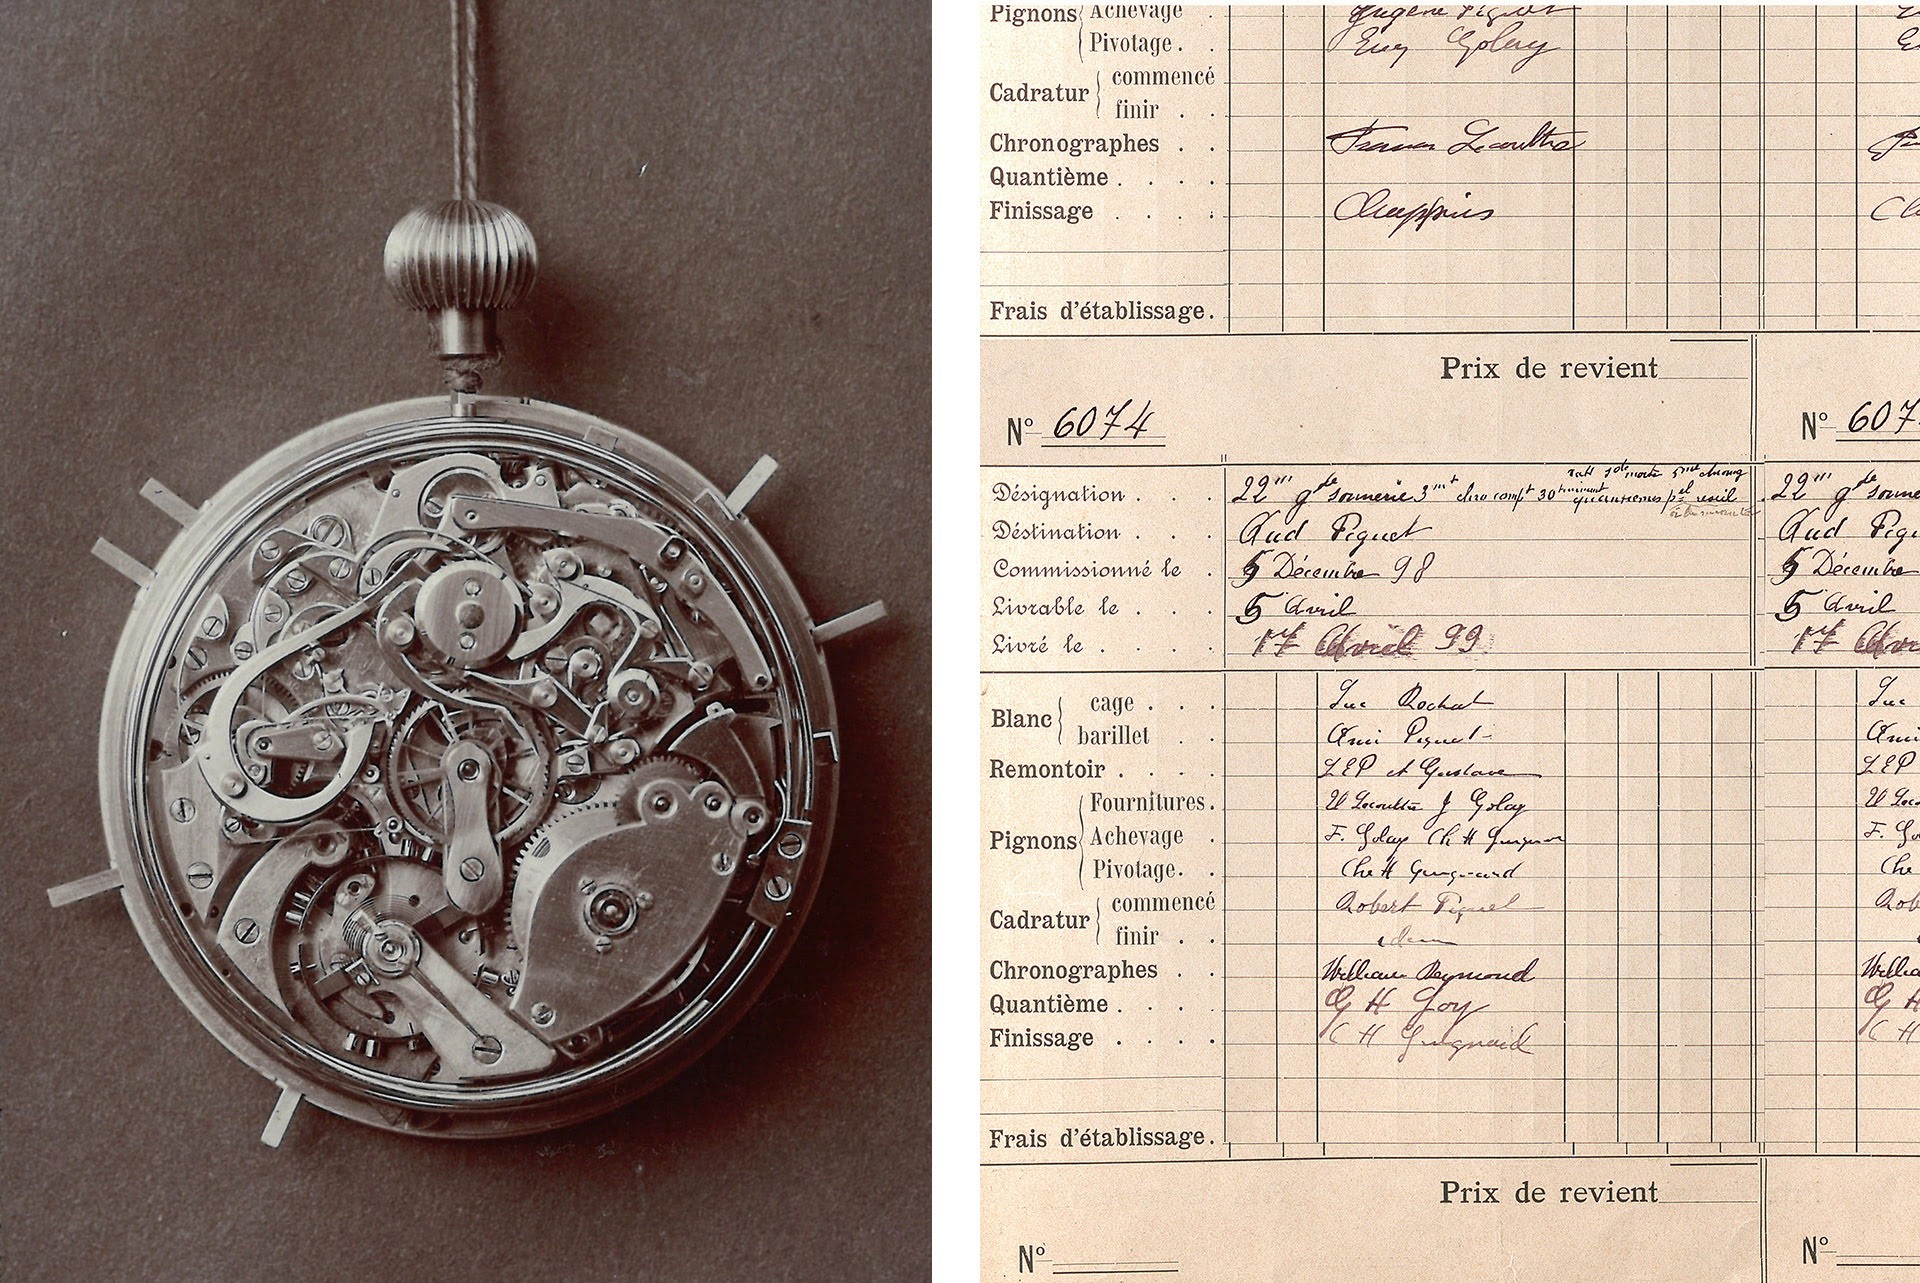 Pignons Achevage . Eugène Piguet
Pivotage . . Eug Golay
Cadratur commencé
finir . .
Chronographes . . Lecoultre
Quantième . . . .
Finissage . . . . Chappuis
Frais d'établissage.
Prix de revient
Nº 6074 Nº 607
Désignation . . . 22''' gde sonnerie 3mt chro compt 30 quantièmes pel 22''' gde sonne
Déstination . . . Aud Piguet Aud Pigu
Commissionné le . 5 Décembre 98 5 Décembre
Livrable le . . . 5 Avril 5 Avril
Livré le . . . . 17 Avril 99 17 Avr
Blanc cage . . . Luc Rochat Luc
barillet . . Ami Piguet Ami
Remontoir . . . . LEP et Gustave LEP
Pignons Fournitures . U Lecoultre J Golay U Leco
Achevage . F. Golay Ch H Guignard F. Go
Pivotage . . Ch H Guignard Ch
Cadratur commencé Robert Piguet Rob
finir . . idem
Chronographes . . William Reymond Willia
Quantième . . . . G H Goy G H
Finissage . . . . C H Guignard C H
Frais d'établissage.
Prix de revient
Nº Nº